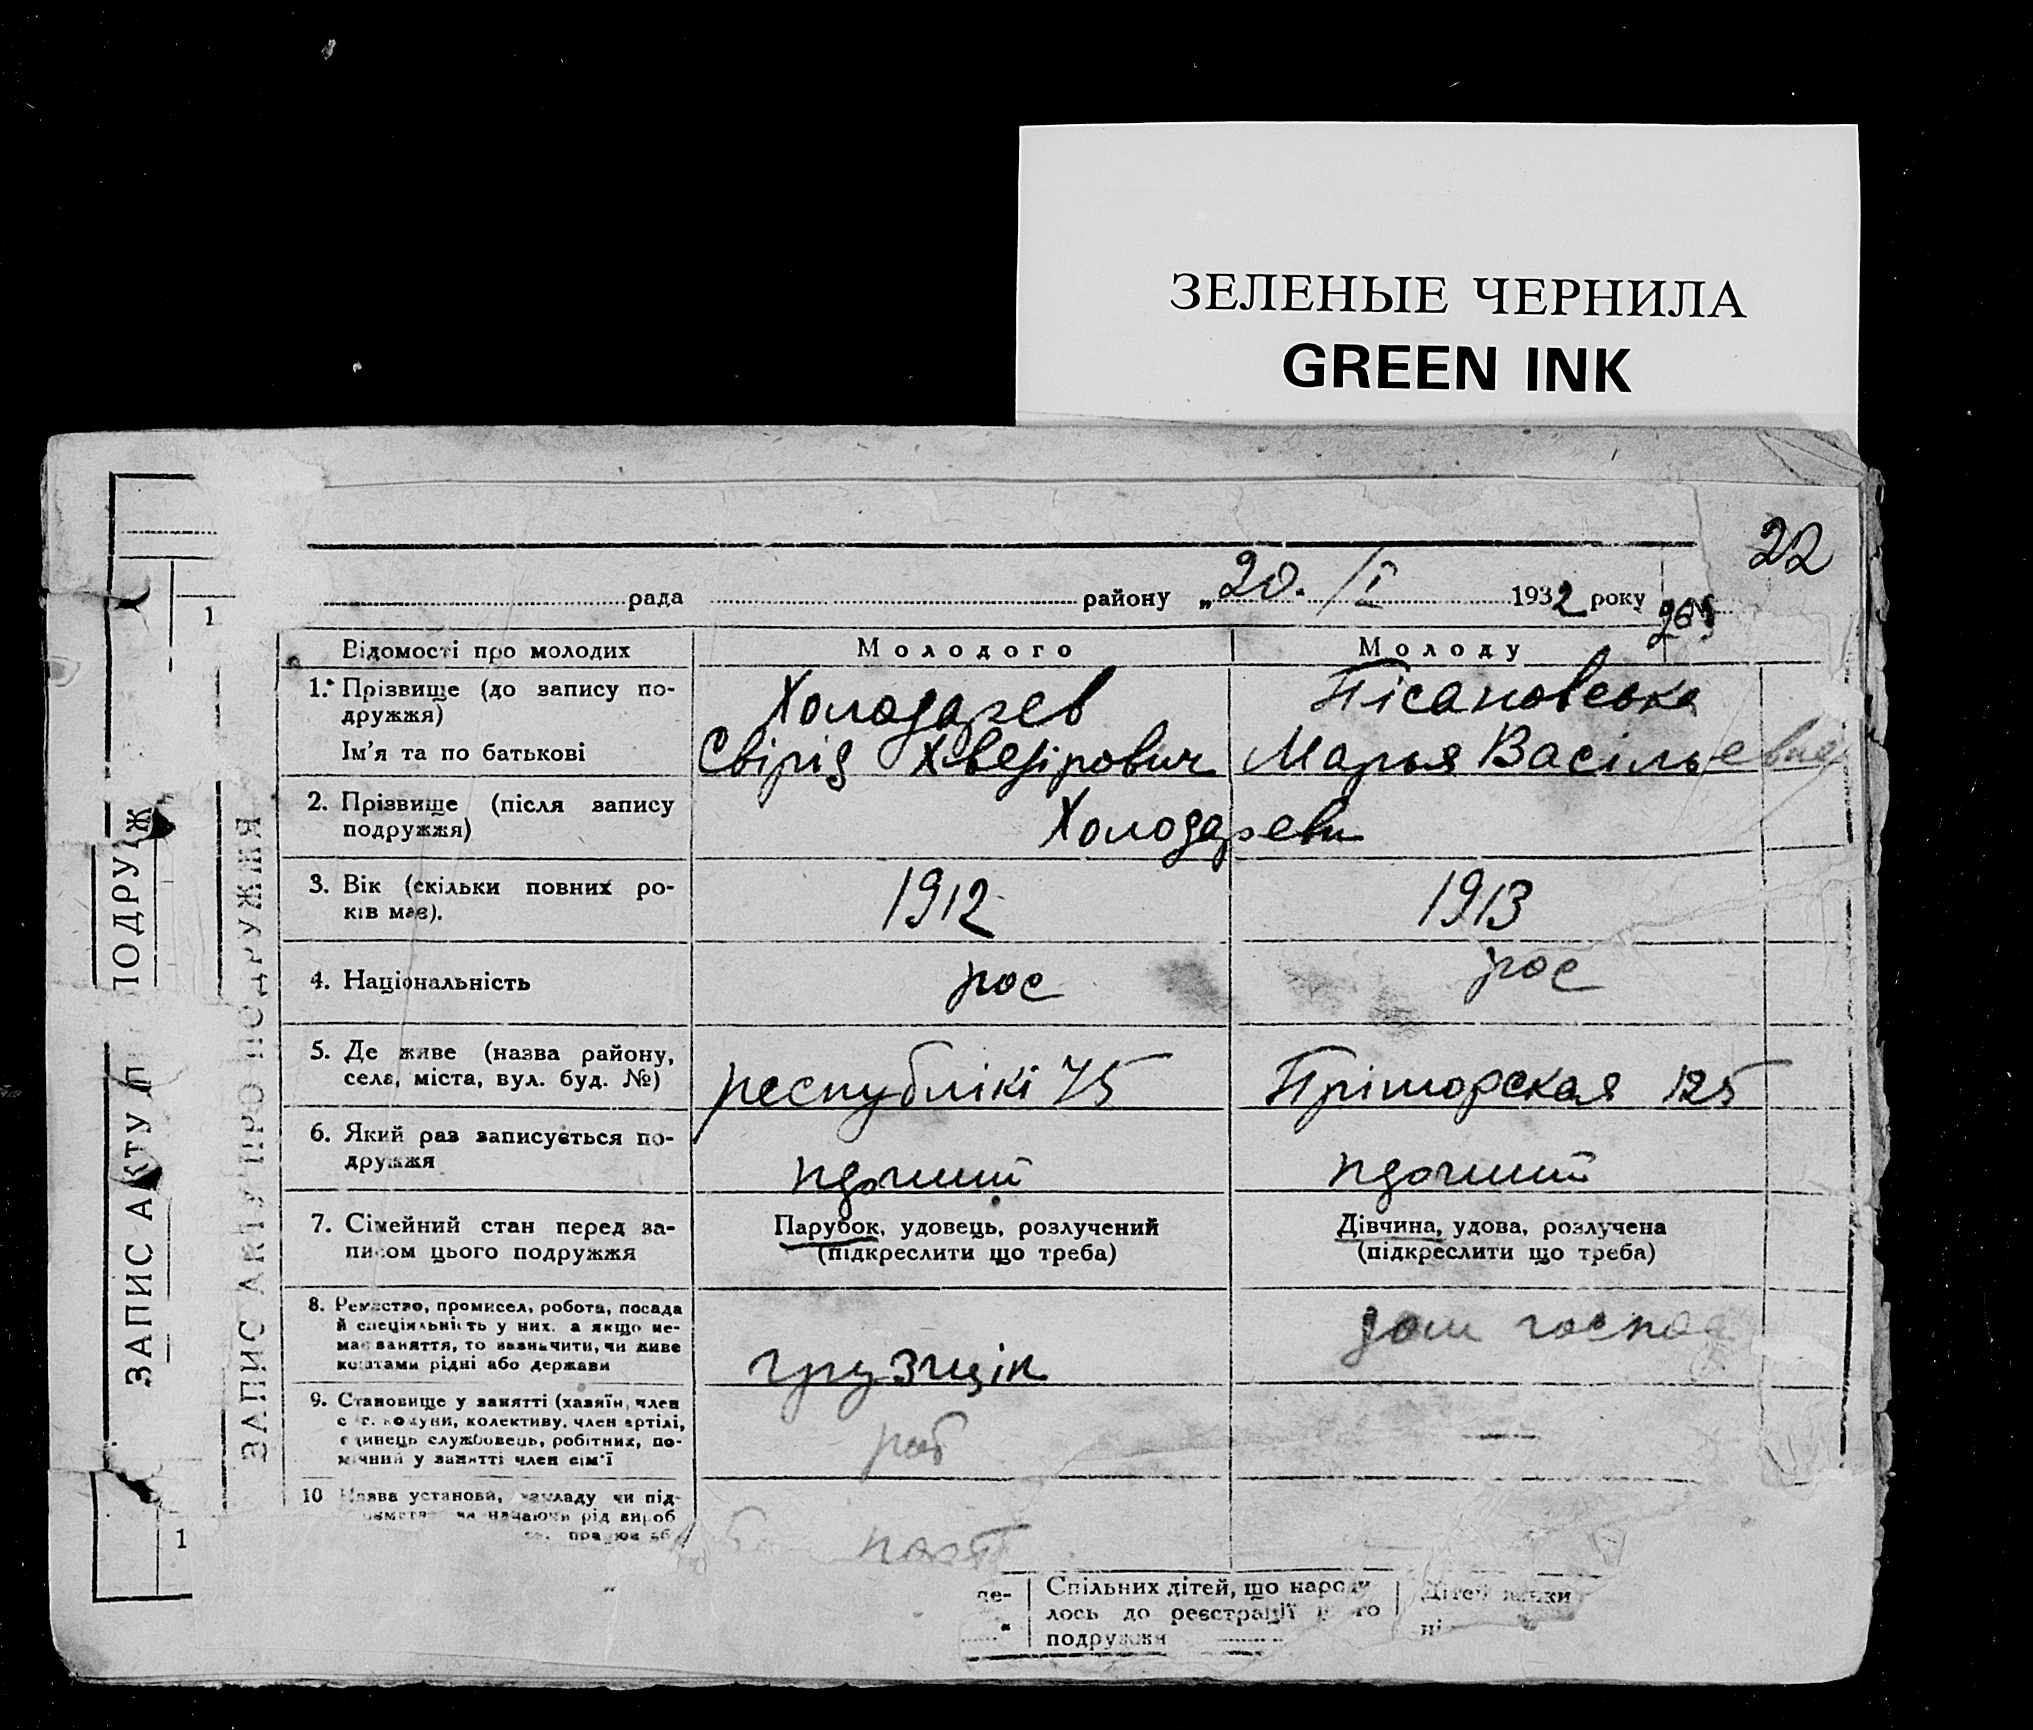 ЗЕЛЕНЫЕ ЧЕРНИЛА
GREEN INK
22
рада району „20. /I 1932 року № 265
1
ЗАПИС АКТУ П ПОДРУЖ
ЗАПИС АКТУ ПРО ПОДРУЖЖЯ
Відомості про молодих Молодого Молоду
1. Прізвище (до запису по-
дружжя)
Холодарев Пісановська
Ім'я та по батькові Свірід Хведірович Марья Васільевна
2. Прізвище (після запису
подружжя)
Холодареви
3. Вік (скільки повних ро-
ків має).
1912 1913
4. Національність рос рос
5. Де живе (назва району,
села, міста, вул. буд. №)
республікі 75 Пріморская 125
6. Який раз записується по-
дружжя
7. Сімейний стан перед за-
писом цього подружжя
Парубок, удовець, розлучений
(підкреслити що треба)
Дівчина, удова, розлучена
(підкреслити що треба)
8. Ремество, промисел, робота, посада
й спеціяльність у них, а якщо не-
має заняття, то зазначити, чи живе
коштами рідні або держави
грузчік дом господ
9. Становище у занятті (хазяїн, член
с.-г. комуни, колективу, член артілі,
одинець службовець, робітник, по-
мічний у занятті член сім'ї
роб —
10 Назва установи, закладу чи під-
рід вироб
порт
1
де- Спільних дітей, що народи
лось до реєстрації цього
подружжя
Дітей
ні